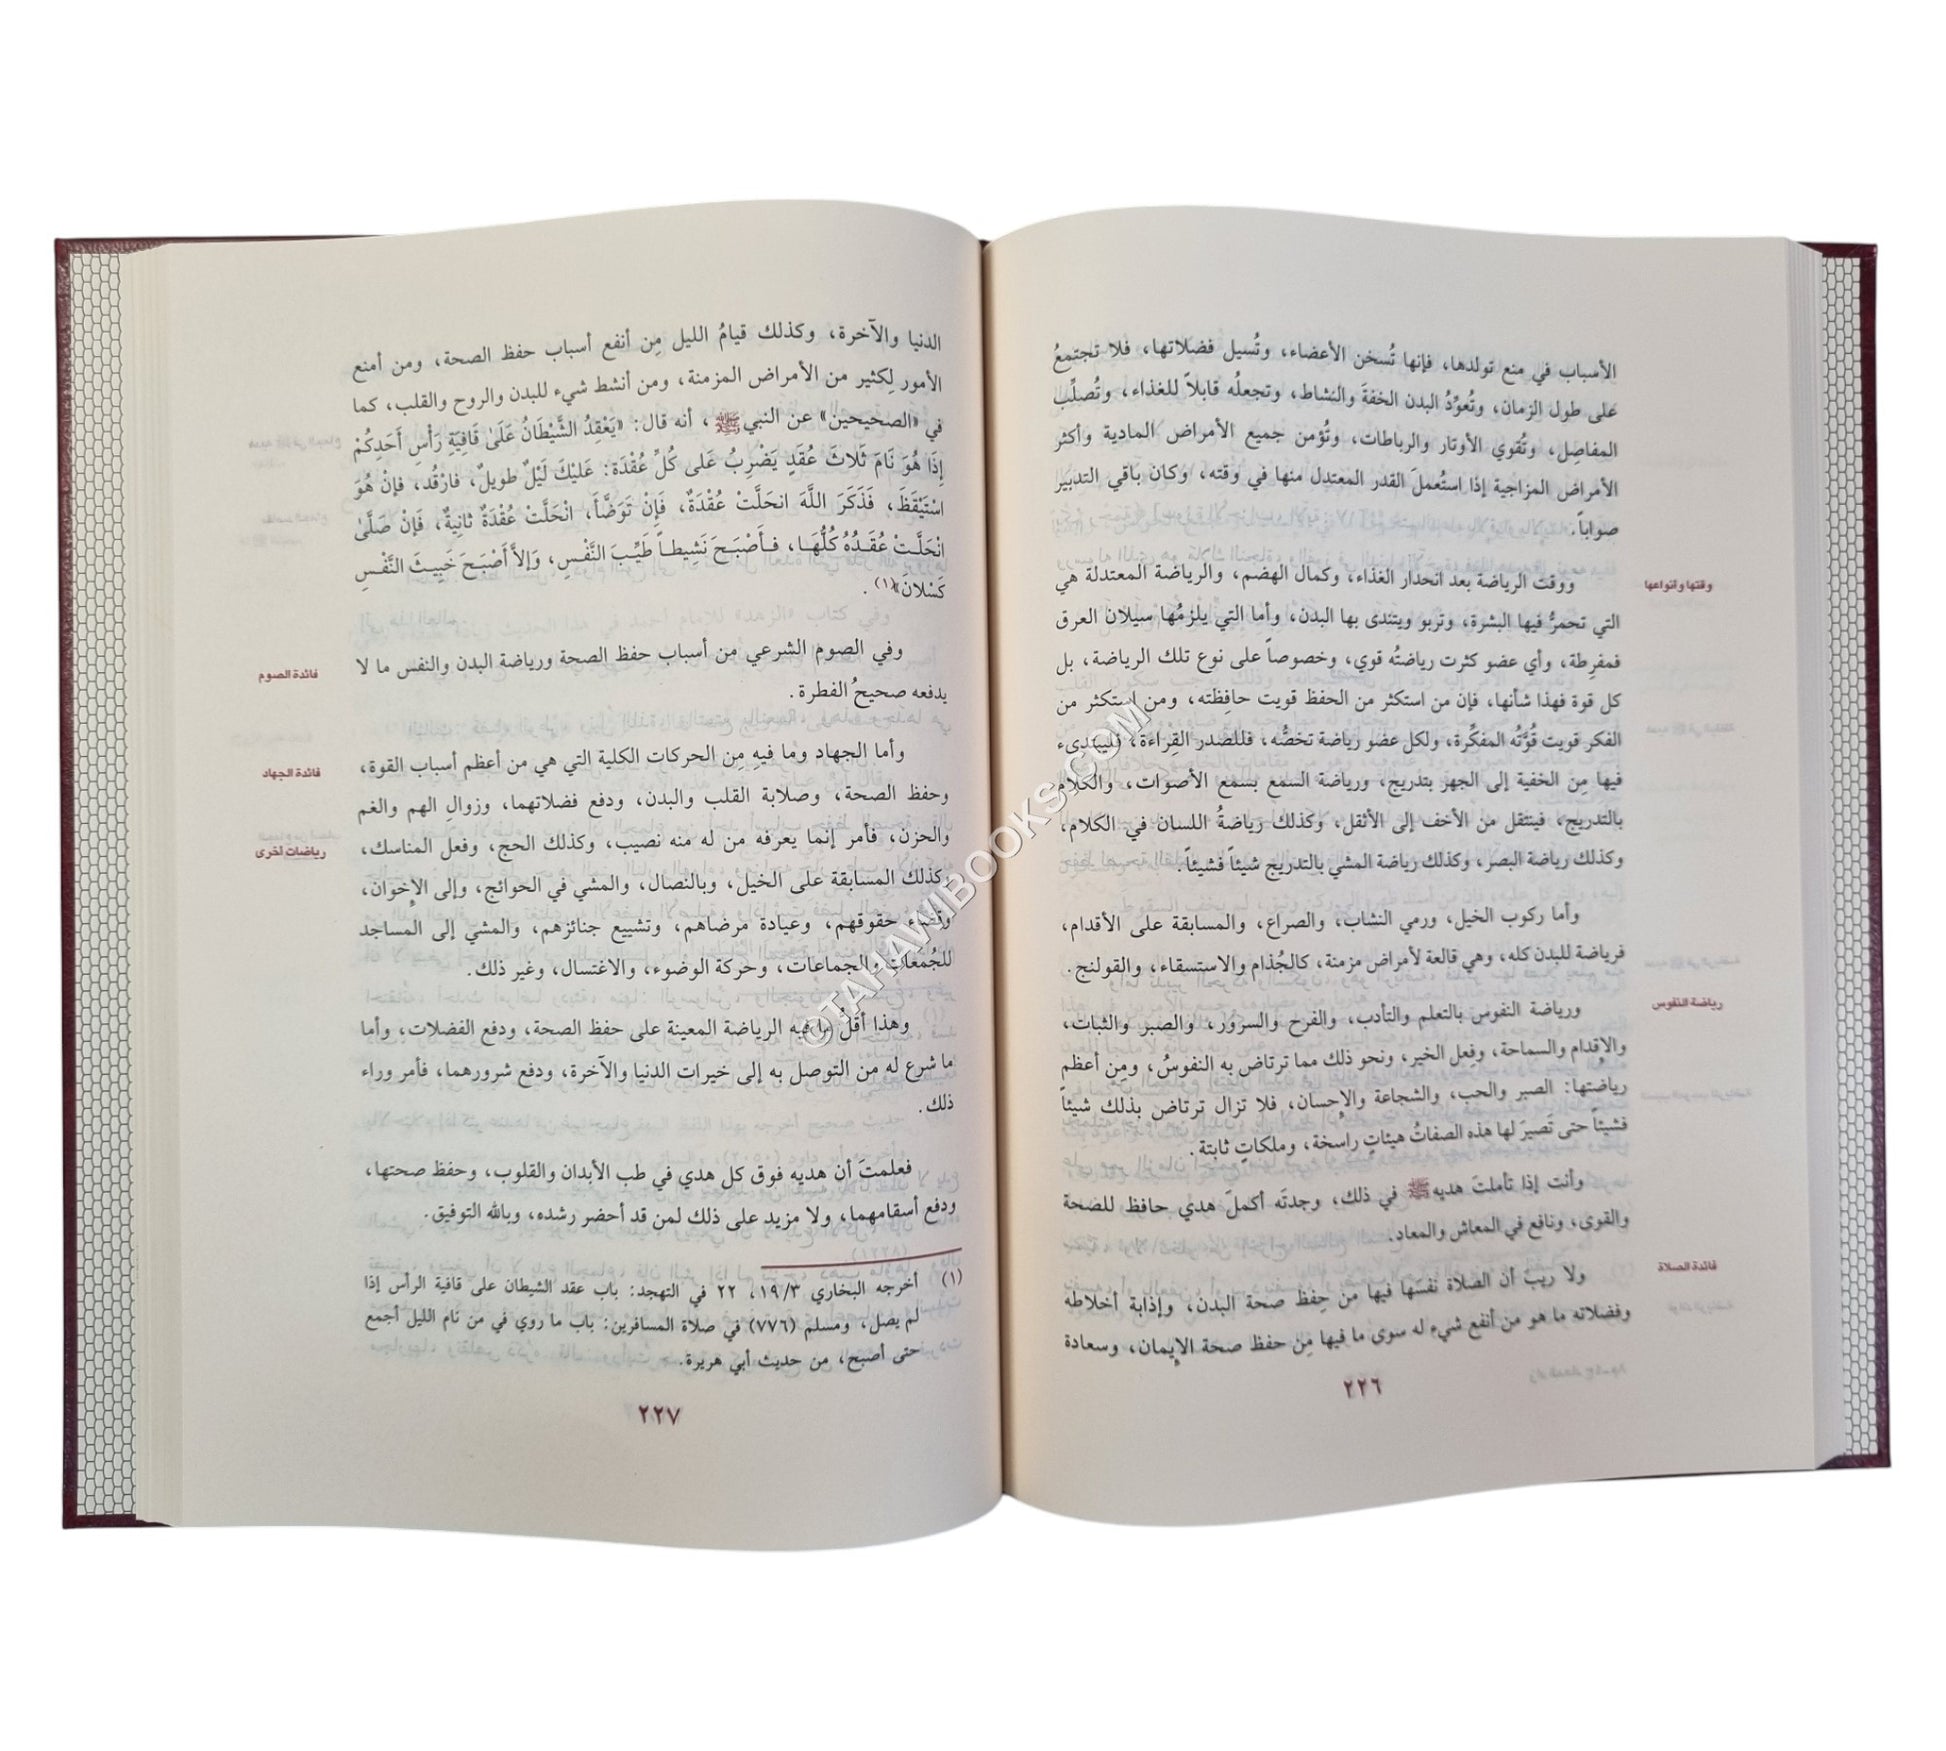 الأسباب في منع تولدها، فإنها تُسخن الأعضاء، وتُسيل فضلاتها، فلا تجتمعُ
على طول الزمان، وتُعوِّدُ البدن الخفةَ والنشاط، وتجعلُه قابلاً للغذاء، وتُصلِّب
المفاصِل، وتُقوي الأوتار والرباطات، وتُؤمن جميع الأمراض المادية وأكثر
الأمراض المزاجية إذا استُعملَ القدر المعتدل منها في وقته، وكان باقي التدبير
صواباً.
وقتها وأنواعها
ووقت الرياضة بعد انحدار الغذاء، وكمال الهضم، والرياضة المعتدلة هي
التي تحمرُّ فيها البشرة، وتربو ويتندى بها البدن، وأما التي يلزمُها سيلان العرق
فمفرِطة، وأي عضو كثرت رياضتُه قوي، وخصوصاً على نوع تلك الرياضة، بل
كل قوة فهذا شأنها، فإن من استكثر من الحفظ قويت حافِظته، ومن استكثر من
الفكر قويت قُوَّتُه المفكِّرة، ولكل عضو رياضة تخصُّه، فللصدر القِراءة، فليبتدىء
فيها مِن الخفية إلى الجهر بتدريج، ورياضة السمع بسمع الأصوات، والكلام
بالتدريج، فينتقل من الأخف إلى الأثقل، وكذلك رياضةُ اللسان في الكلام،
وكذلك رياضة البصر، وكذلك رياضة المشي بالتدريج شيئاً فشيئاً.
وأما ركوب الخيل، ورمي النشاب، والصراع، والمسابقة على الأقدام،
فرياضة للبدن كله، وهي قالعة لأمراض مزمنة، كالجُذام والاستسقاء، والقولنج.
رياضة النفوس
ورياضة النفوس بالتعلم والتأدب، والفرح والسرور، والصبر والثبات،
والإِقدام والسماحة، وفِعل الخير، ونحو ذلك مما ترتاض به النفوسُ، ومِن أعظم
رياضتها: الصبر والحب، والشجاعة والإِحسان، فلا تزال ترتاض بذلك شيئاً
فشيئاً حتى تَصيرَ لها هذه الصفاتُ هيئاتٍ راسخة، وملكاتٍ ثابتة.
وأنت إذا تأملتَ هديه ﷺ في ذلك، وجدتَه أكملَ هدي حافظ للصحة
والقوى، ونافع في المعاش والمعاد.
فائدة الصلاة
ولا ريبَ أن الصلاة نفسَها فيها من حِفظ صحة البدن، وإذابة أخلاطه
وفضلاته ما هو من أنفع شيء له سوى ما فيها مِن حفظ صحة الإِيمان، وسعادة
٢٢٦
الدنيا والآخرة، وكذلك قيامُ الليل مِن أنفع أسباب حفظ الصحة، ومن أمنع
الأمور لِكثير من الأمراض المزمنة، ومن أنشط شيء للبدن والروح والقلب، كما
في «الصحيحين» عن النبي ﷺ، أنه قال: «يَعْقِدُ الشَّيْطَانُ عَلَىٰ قَافِيَةِ رَأْسِ أَحَدِكُمْ
إِذَا هُوَ نَامَ ثَلَاثَ عُقَدٍ يَضْرِبُ عَلى كُلِّ عُقْدَة: عَلَيْكَ لَيْلٌ طويلٌ، فارْقُد، فإنْ هُوَ
اسْتَيْقَظَ، فَذَكَرَ اللَّهَ انحَلَّتْ عُقْدَةٌ، فَإِنْ تَوَضَّأَ، انْحَلَّتْ عُقْدَةٌ ثانِيَةٌ، فَإِنْ صَلَّىٰ
انْحَلَّتْ عُقَدُهُ كُلُّهَا، فأَصْبَحَ نَشِيطاً طَيِّبَ النَّفْسِ، وَإلاَّ أَصْبَحَ خَبِيثَ النَّفْسِ
كَسْلانَ»(١).
فائدة الصوم
وفي الصوم الشرعي من أسباب حفظ الصحة ورياضة البدن والنفس ما لا
يدفعه صحيحُ الفطرة.
فائدة الجهاد
وأما الجهاد وما فيهِ مِن الحركات الكلية التي هي من أعظم أسباب القوة،
وحفظ الصحة، وصلابة القلب والبدن، ودفع فضلاتهما، وزوالِ الهم والغم
رياضات أخرى
والحزن، فأمر إنما يعرفه من له منه نصيب، وكذلك الحج، وفعل المناسك،
وكذلك المسابقة على الخيل، وبالنصال، والمشي في الحوائج، وإلى الإِخوان،
وقضاء حقوقهم، وعيادة مرضاهم، وتشييع جنائزهم، والمشي إلى المساجد
للجُمعات والجماعات، وحركة الوضوء، والاغتسال، وغير ذلك.
وهذا أقلُّ ما فيه الرياضة المعينة على حفظ الصحة، ودفع الفضلات، وأما
ما شرع له من التوصل به إلى خيرات الدنيا والآخرة، ودفع شرورهما، فأمر وراء
ذلك.
فعلمتَ أن هديه فوق كل هدي في طب الأبدان والقلوب، وحفظ صحتها،
ودفع أسقامهما، ولا مزيد على ذلك لمن قد أحضر رشده، وبالله التوفيق.
(١) أخرجه البخاري ٣/١٩، ٢٢ في التهجد: باب عقد الشيطان على قافية الرأس إذا
لم يصل، ومسلم (٧٧٦) في صلاة المسافرين: باب ما روي في من نام الليل أجمع
حتى أصبح، من حديث أبي هريرة.
٢٢٧
©TAHAWIBOOKS.COM